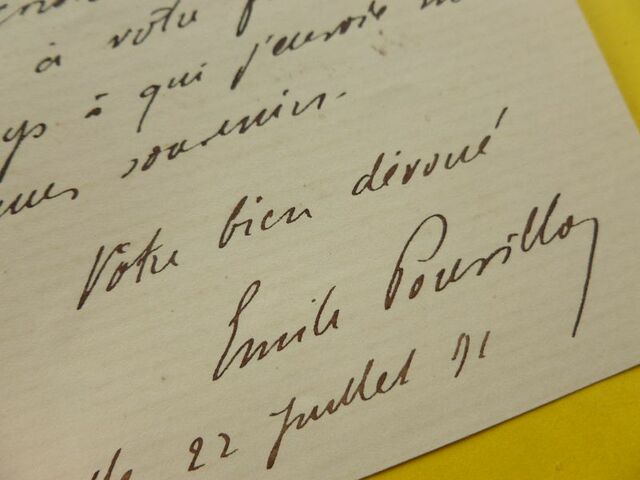 à votre
à qui j'envoie
souvenirs.
Votre bien dévoué
Emile Pouvillon
22 Juillet 91